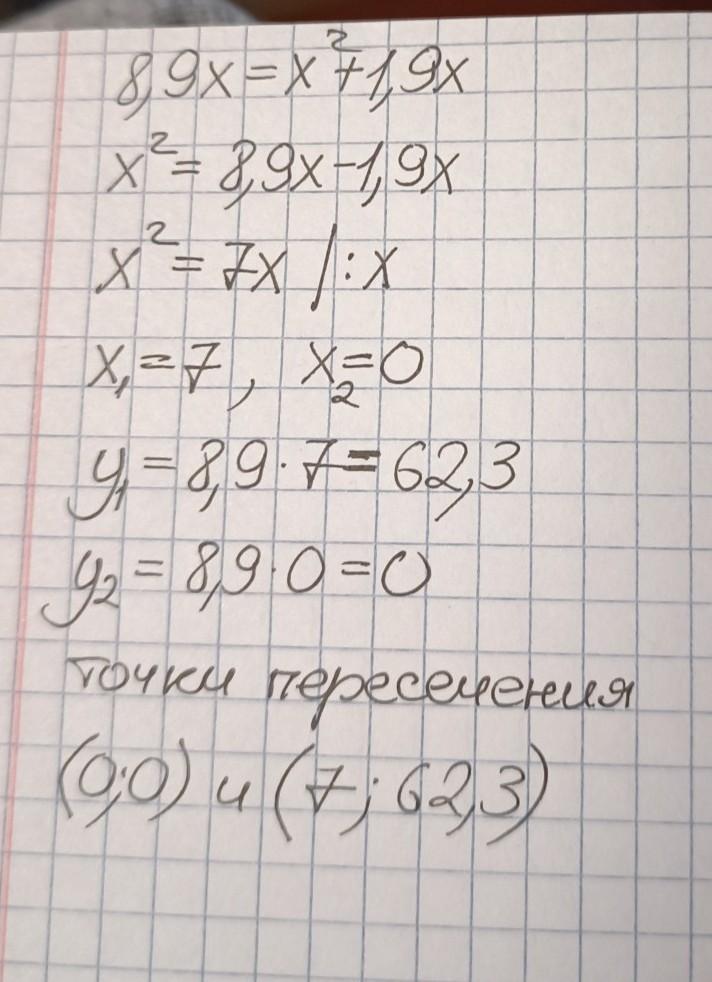 8,9x = x²+1,9x
x² = 8,9x-1,9x
x² = 7x /:x
x₁ = 7, x₂ = 0
y₁ = 8,9·7 = 62,3
y₂ = 8,9·0 = 0
точки пересечения
(0;0) и (7; 62,3)